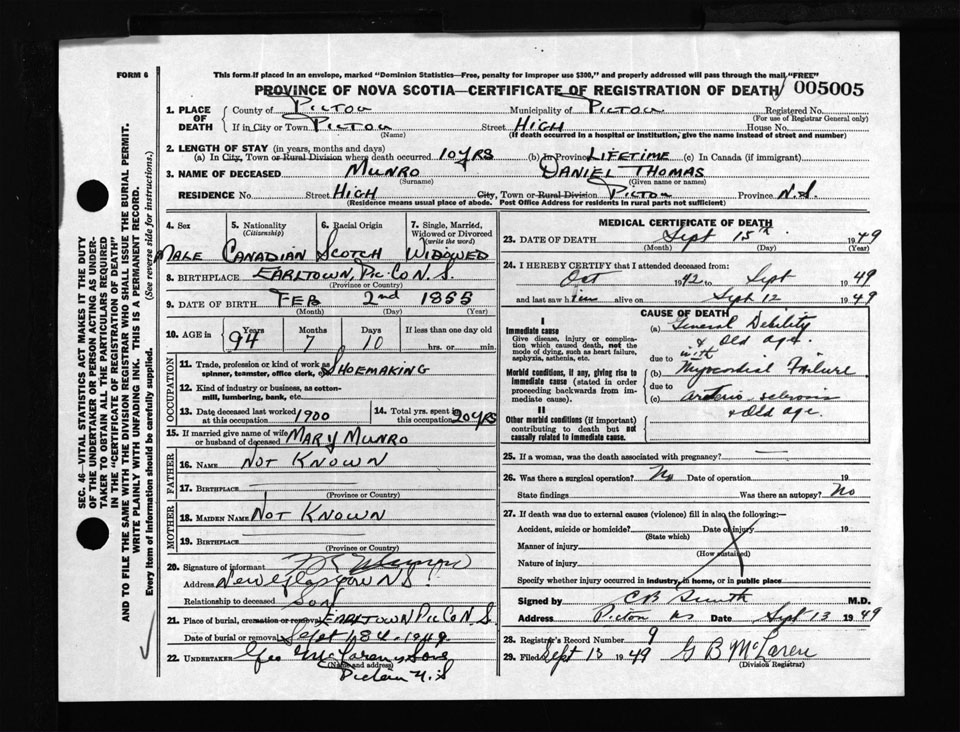 FORM 6
This form if placed in an envelope, marked "Dominion Statistics—Free, penalty for improper use $300," and properly addressed will pass through the mail "FREE"
PROVINCE OF NOVA SCOTIA—CERTIFICATE OF REGISTRATION OF DEATH 005005
1. PLACE OF DEATH
County of PICTOU Municipality of PICTOU Registered No.
(For use of Registrar General only)
If in City or Town PICTOU Street HIGH House No.
(Name) (If death occurred in a hospital or institution, give the name instead of street and number)
2. LENGTH OF STAY (in years, months and days)
(a) In City, Town or Rural Division where death occurred 10 YRS (b) In Province LIFETIME (c) In Canada (if immigrant)
3. NAME OF DECEASED MUNRO DANIEL THOMAS
(Surname) (Given name or names)
RESIDENCE No. Street HIGH City, Town or Rural Division PICTOU Province N.S.
(Residence means usual place of abode. Post Office Address for residents in rural parts not sufficient)
4. Sex 5. Nationality (Citizenship) 6. Racial Origin 7. Single, Married, Widowed or Divorced (write the word)
MALE CANADIAN SCOTCH WIDOWED
8. BIRTHPLACE EARLTOWN, PIC. CO N.S.
(Province or Country)
9. DATE OF BIRTH FEB 2nd 1855
(Month) (Day) (Year)
10. AGE in Years Months Days If less than one day old
94 7 10 hrs. or min.
OCCUPATION
11. Trade, profession or kind of work as spinner, teamster, office clerk, etc. SHOEMAKING
12. Kind of industry or business, as cotton-mill, lumbering, bank, etc.
13. Date deceased last worked at this occupation 1900 14. Total yrs. spent in this occupation 20 yrs
15. If married give name of wife or husband of deceased MARY MUNRO
FATHER
16. NAME NOT KNOWN
17. BIRTHPLACE
(Province or Country)
MOTHER
18. MAIDEN NAME NOT KNOWN
19. BIRTHPLACE
(Province or Country)
20. Signature of informant
Address New Glasgow N.S
Relationship to deceased SON
21. Place of burial, cremation or removal EARLTOWN Pic Co N.S.
Date of burial or removal Sept 18th 1949
22. UNDERTAKER Geo McLaren & Sons
(Name and address)
Pictou N.S
MEDICAL CERTIFICATE OF DEATH
23. DATE OF DEATH Sept 15th 1949
(Month) (Day)
24. I HEREBY CERTIFY that I attended deceased from:
Oct 1942 to Sept 1949
and last saw him alive on Sept 12 1949
CAUSE OF DEATH
I
Immediate cause
Give disease, injury or complication which caused death, not the mode of dying, such as heart failure, asphyxia, asthenia, etc.
(a) General Debility
& Old age.
due to with
Morbid conditions, if any, giving rise to immediate cause (stated in order proceeding backwards from immediate cause).
(b) Myocardial Failure
due to
(c) arterio-sclerosis
& Old age.
II
Other morbid conditions (if important) contributing to death but not causally related to immediate cause.
25. If a woman, was the death associated with pregnancy?
26. Was there a surgical operation? No Date of operation 19
State findings Was there an autopsy? No
27. If death was due to external causes (violence) fill in also the following:—
Accident, suicide or homicide? Date of injury 19
(State which)
Manner of injury
(How sustained)
Nature of injury
Specify whether injury occurred in industry, in home, or in public place
Signed by C B Smith M.D.
Address Pictou NS Date Sept 13 1949
28. Registrar's Record Number 9
29. Filed Sept 15 1949 G B McLaren
(Division Registrar)
SEC. 46—VITAL STATISTICS ACT MAKES IT THE DUTY
OF THE UNDERTAKER OR PERSON ACTING AS UNDER-
TAKER TO OBTAIN ALL THE PARTICULARS REQUIRED
IN THE "CERTIFICATE OF REGISTRATION OF DEATH"
AND TO FILE THE SAME WITH THE DIVISION REGISTRAR WHO SHALL ISSUE THE BURIAL PERMIT.
WRITE PLAINLY WITH UNFADING INK. THIS IS A PERMANENT RECORD.
Every item of information should be carefully supplied. (See reverse side for instructions.)